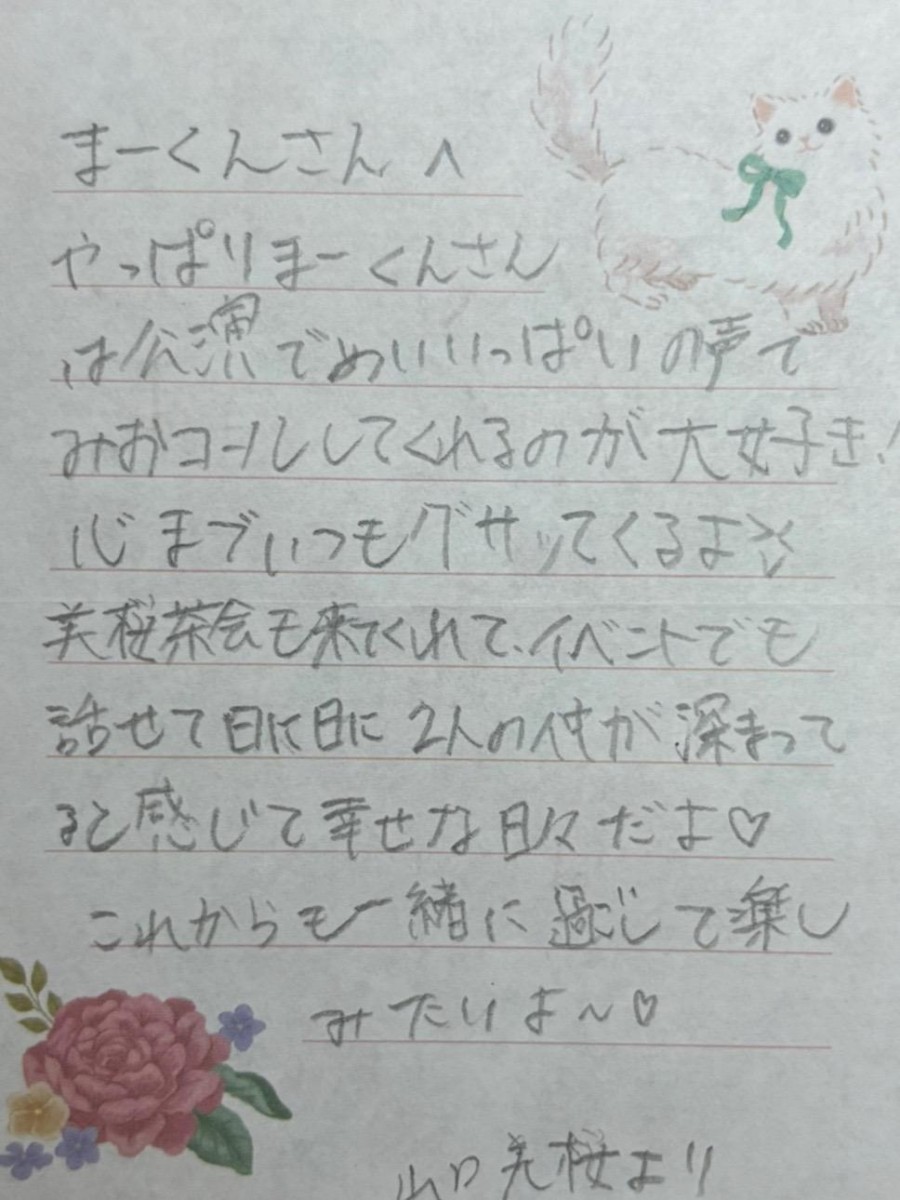 まーくんさん へ
やっぱりまーくんさん
は公演でめいいいっぱいの声で
みおコールしてくれるのが大好き!
心までいつもグサッてくるよ
美桜茶会も来てくれて、イベントでも
話せて日に日に2人の仲が深まって
ると感じて幸せな日々だよ♡
これからも一緒に過ごして楽し
みたいよ〜♡
山口美桜より